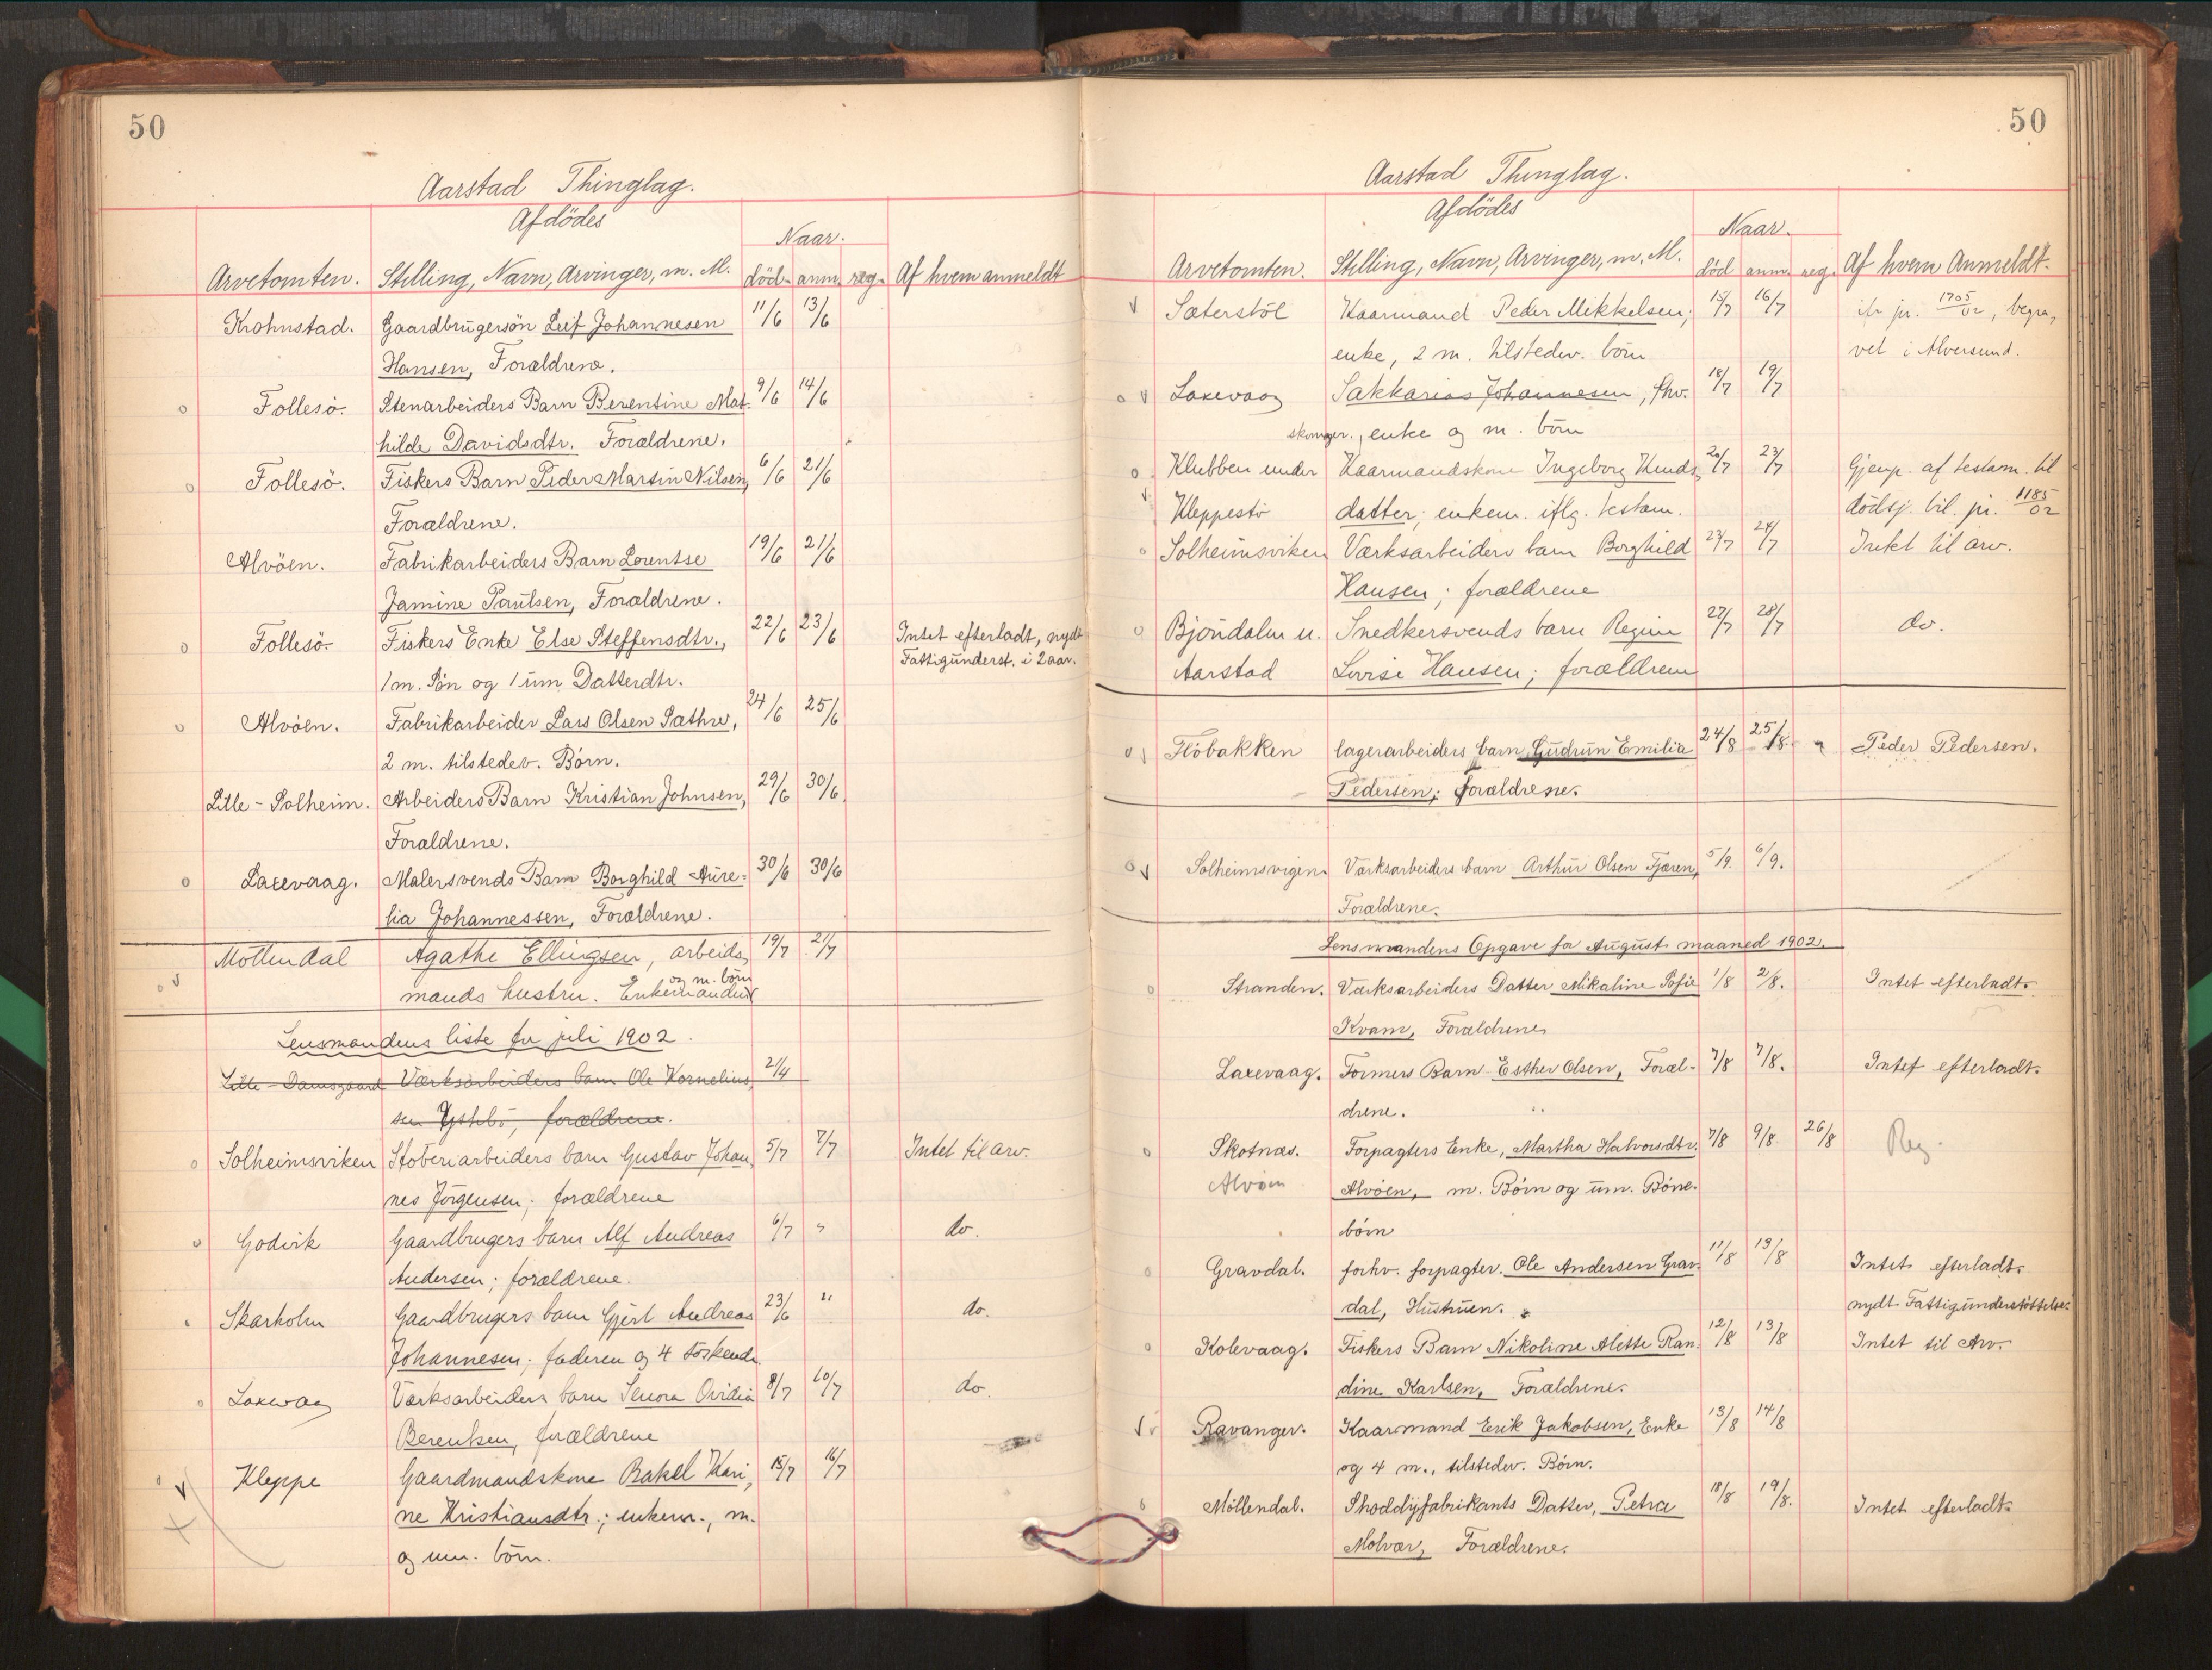 50
Aarstad Thinglag.
Afdödes
Naar.
Arvetomten. Stilling, Navn, Arvinger, m. M. död. anm. reg. Af hvem anmeldt
Krohnstad. Gaardbrugersön Leif Johannesen 11/6 13/6
Hansen, Forældrene.
o Follesö. Stenarbeiders Barn Berentine Mat- 9/6 14/6
hilde Davidsdtr. Forældrene.
o Follesö. Fiskers Barn Peder Martin Nilsen, 6/6 21/6
Forældrene.
Alvöen. Fabrikarbeiders Barn Lorentse 19/6 21/6
Jamine Paulsen, Forældrene.
o Follesö. Fiskers Enke Else Steffensdtr., 22/6 23/6 Intet efterladt, nydt
1 m. Sön og 1 um. Datterdtr. Fattigunderst. i 2 aar.
o Alvöen. Fabrikarbeider Lars Olsen Sæthre, 24/6 25/6
2 m. tilstedev. Börn.
Lille-Solheim. Arbeiders Barn Kristian Johnsen, 29/6 30/6.
Forældrene.
o Laxevaag. Malersvends Barn Borghild Aure= 30/6 30/6
lia Johannessen, Forældrene.
o v Möllendal Agathe Ellingsen, arbeids, 19/7 21/7
og m. börn
mands hustru. Enkemanden
Lensmandens liste for juli 1902.
Lille-Damsgaard Værksarbeiders barn Ole Kornelius, 21/4
sen Ystebö, forældrene.
o Solheimsviken Stöberiarbeiders barn Gustav Johan, 5/7 7/7 Intet til arv.
nes Jörgensen; forældrene
o Godvik Gaardbrugers barn Alf Andreas 6/7 " do.
Andersen; forældrene.
Skarholm Gaardbrugers barn Gjert Andreas 23/6 " do.
Johannesen; faderen og 4 söskende.
o Laxevaag Værksarbeiders barn Senora Ovidia 8/7 10/7 do.
Berentsen, forældrene
v Kleppe Gaardmandskone Rakel Kari, 15/7 16/7
x ne Kristiansdtr.; enkem., m.
og um. börn.
50
Aarstad Thinglag.
Afdödes
Naar.
Arvetomten. Stilling, Navn, Arvinger, m. M. död anm. reg. Af hvem Anmeldt.
v Sæterstöl Kaarmand Peder Mikkelsen; 15/7 16/7 iflr jr. 1705/02, begra,
enke, 2 m. tilstedev. börn vet i Alversund.
o v Laxevaag Sakkarias Johannesen, fhv. 18/7 19/7
enke og m. börn
o Klubben under Kaarmandskone Ingeborg Knuds, 20/7 23/7 Gjenp. af testam. til
v Kleppestö datter; enkem. iflg. testam. dödsj. bil. jr. 1185/02
o Solheimsviken Værksarbeiders barn Borghild 23/7 24/7 Intet til arv.
Hansen; forældrene
o Björndalen u. Snedkersvends barn Regine 27/7 28/7 do.
Aarstad Lovise Hansen; forældrene
o Flöbakken lagerarbeiders barn Gudrun Emilia 24/8 25/8 Peder Pedersen.
Pedersen; forældrene.
o v Solheimsvigen Værksarbeiders barn Arthur Olsen Fjæren, 5/9. 6/9.
Forældrene.
Lensmandens Opgave for August maaned 1902.
o Stranden. Værksarbeiders Datter Mikaline Sofie 1/8 2/8. Intet efterladt.
Kvam, Forældrene
Laxevaag. Formers Barn Esther Olsen, Foræl- 7/8 7/8. Intet efterladt.
drene.
o Skotnæs. Forpagters Enke, Martha Halvorsdtr. 7/8 9/8 26/8 Reg.
Alvöen Alvöen, m. Börn og um. Börne-
börn
o Gravdal. forhv. forpagter. Ole Andersen Grav- 11/8 13/8 Intet efterladt.
dal, Hustruen. nydt Fattigunderstöttelse.
o Kolevaag. Fiskers Barn Nikoline Alette Ran- 12/8 13/8 Intet til Arv.
dine Karlsen, Forældrene.
v Ravanger. Kaarmand Erik Jakobsen, Enke 13/8 14/8
og 4 m., tilstedev. Börn.
o Möllendal. Shoddyfabrikants Datter, Petra 18/8 19/8. Intet efterladt.
Molvær, Forældrene.